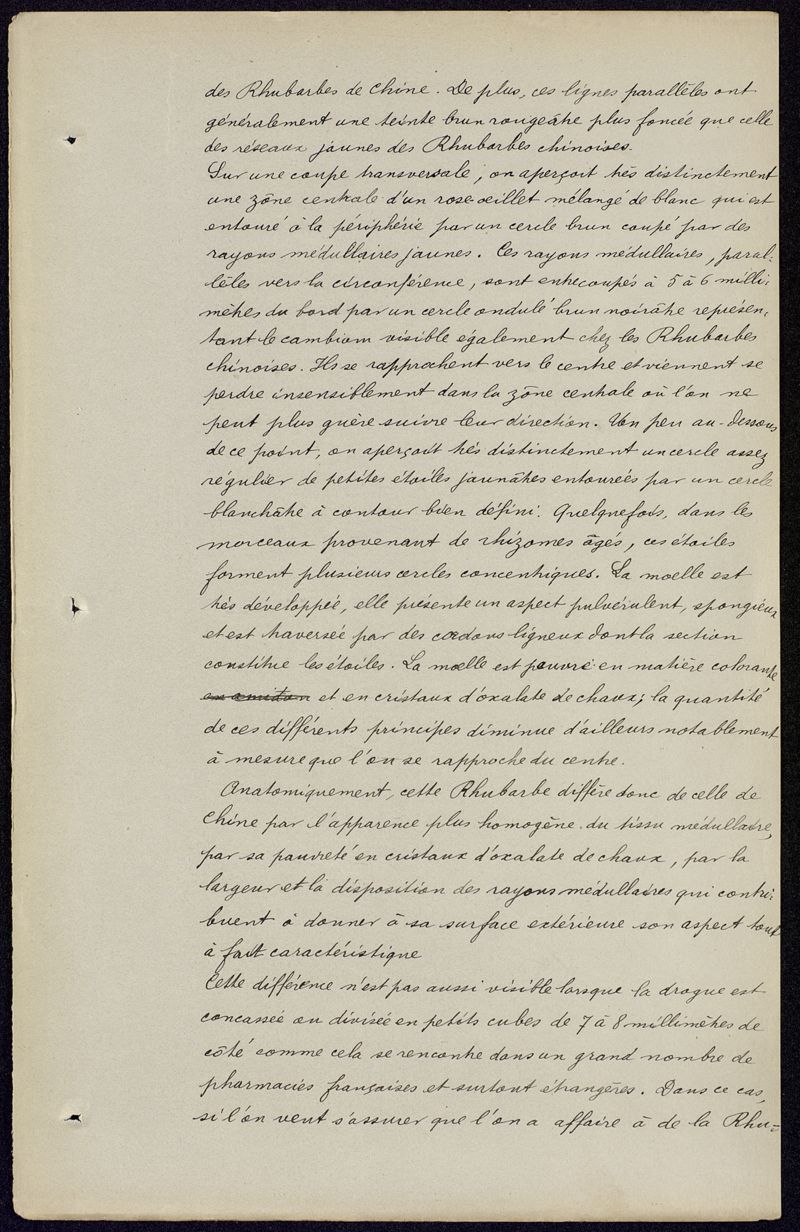 des Rhubarbes de Chine. De plus, ces lignes parallèles ont
généralement une teinte brun rougeâtre plus foncée que celle
des réseaux jaunes des Rhubarbes chinoises.
Sur une coupe transversale, on aperçoit très distinctement
une zône centrale d'un rose-œillet mélangé de blanc qui est
entouré à la périphérie par un cercle brun coupé par des
rayons médullaires jaunes. Ces rayons médullaires, paral-
lèles vers la circonférence, sont entrecoupés à 5 à 6 milli-
mètres du bord par un cercle ondulé brun noirâtre représen-
tant le cambium visible également chez les Rhubarbes
chinoises. Ils se rapprochent vers le centre et viennent se
perdre insensiblement dans la zône centrale où l'on ne
peut plus guère suivre leur direction. Un peu au-dessous
de ce point, on aperçoit très distinctement un cercle assez
régulier de petites étoiles jaunâtres entourées par un cercle
blanchâtre à contour bien défini. Quelquefois, dans les
morceaux provenant de rhizomes âgés, ces étoiles
forment plusieurs cercles concentriques. La moelle est
très développée, elle présente un aspect pulvérulent, spongieux
et est traversée par des cordons ligneux dont la section
constitue les étoiles. La moelle est pauvre en matière colorante
en amidon et en cristaux d'oxalate de chaux; la quantité
de ces différents principes diminue d'ailleurs notablement
à mesure que l'on se rapproche du centre.
Anatomiquement, cette Rhubarbe diffère donc de celle de
Chine par l'apparence plus homogène du tissu médullaire,
par sa pauvreté en cristaux d'oxalate de chaux, par la
largeur et la disposition des rayons médullaires qui contri-
buent à donner à sa surface extérieure son aspect tout
à fait caractéristique
Cette différence n'est pas aussi visible lorsque la drogue est
concassée ou divisée en petits cubes de 7 à 8 millimètres de
côté comme cela se rencontre dans un grand nombre de
pharmacies françaises et surtout étrangères. Dans ce cas,
si l'on veut s'assurer que l'on a affaire à de la Rhu-